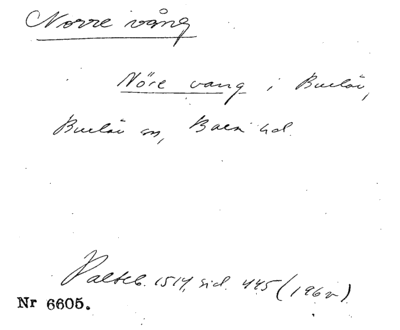 Norre vång
Nöre vang i Burlöv,
Burlöv sn, Bara hd.
Palteb. 1514, sid. 445 (196v)
Nr 6605.